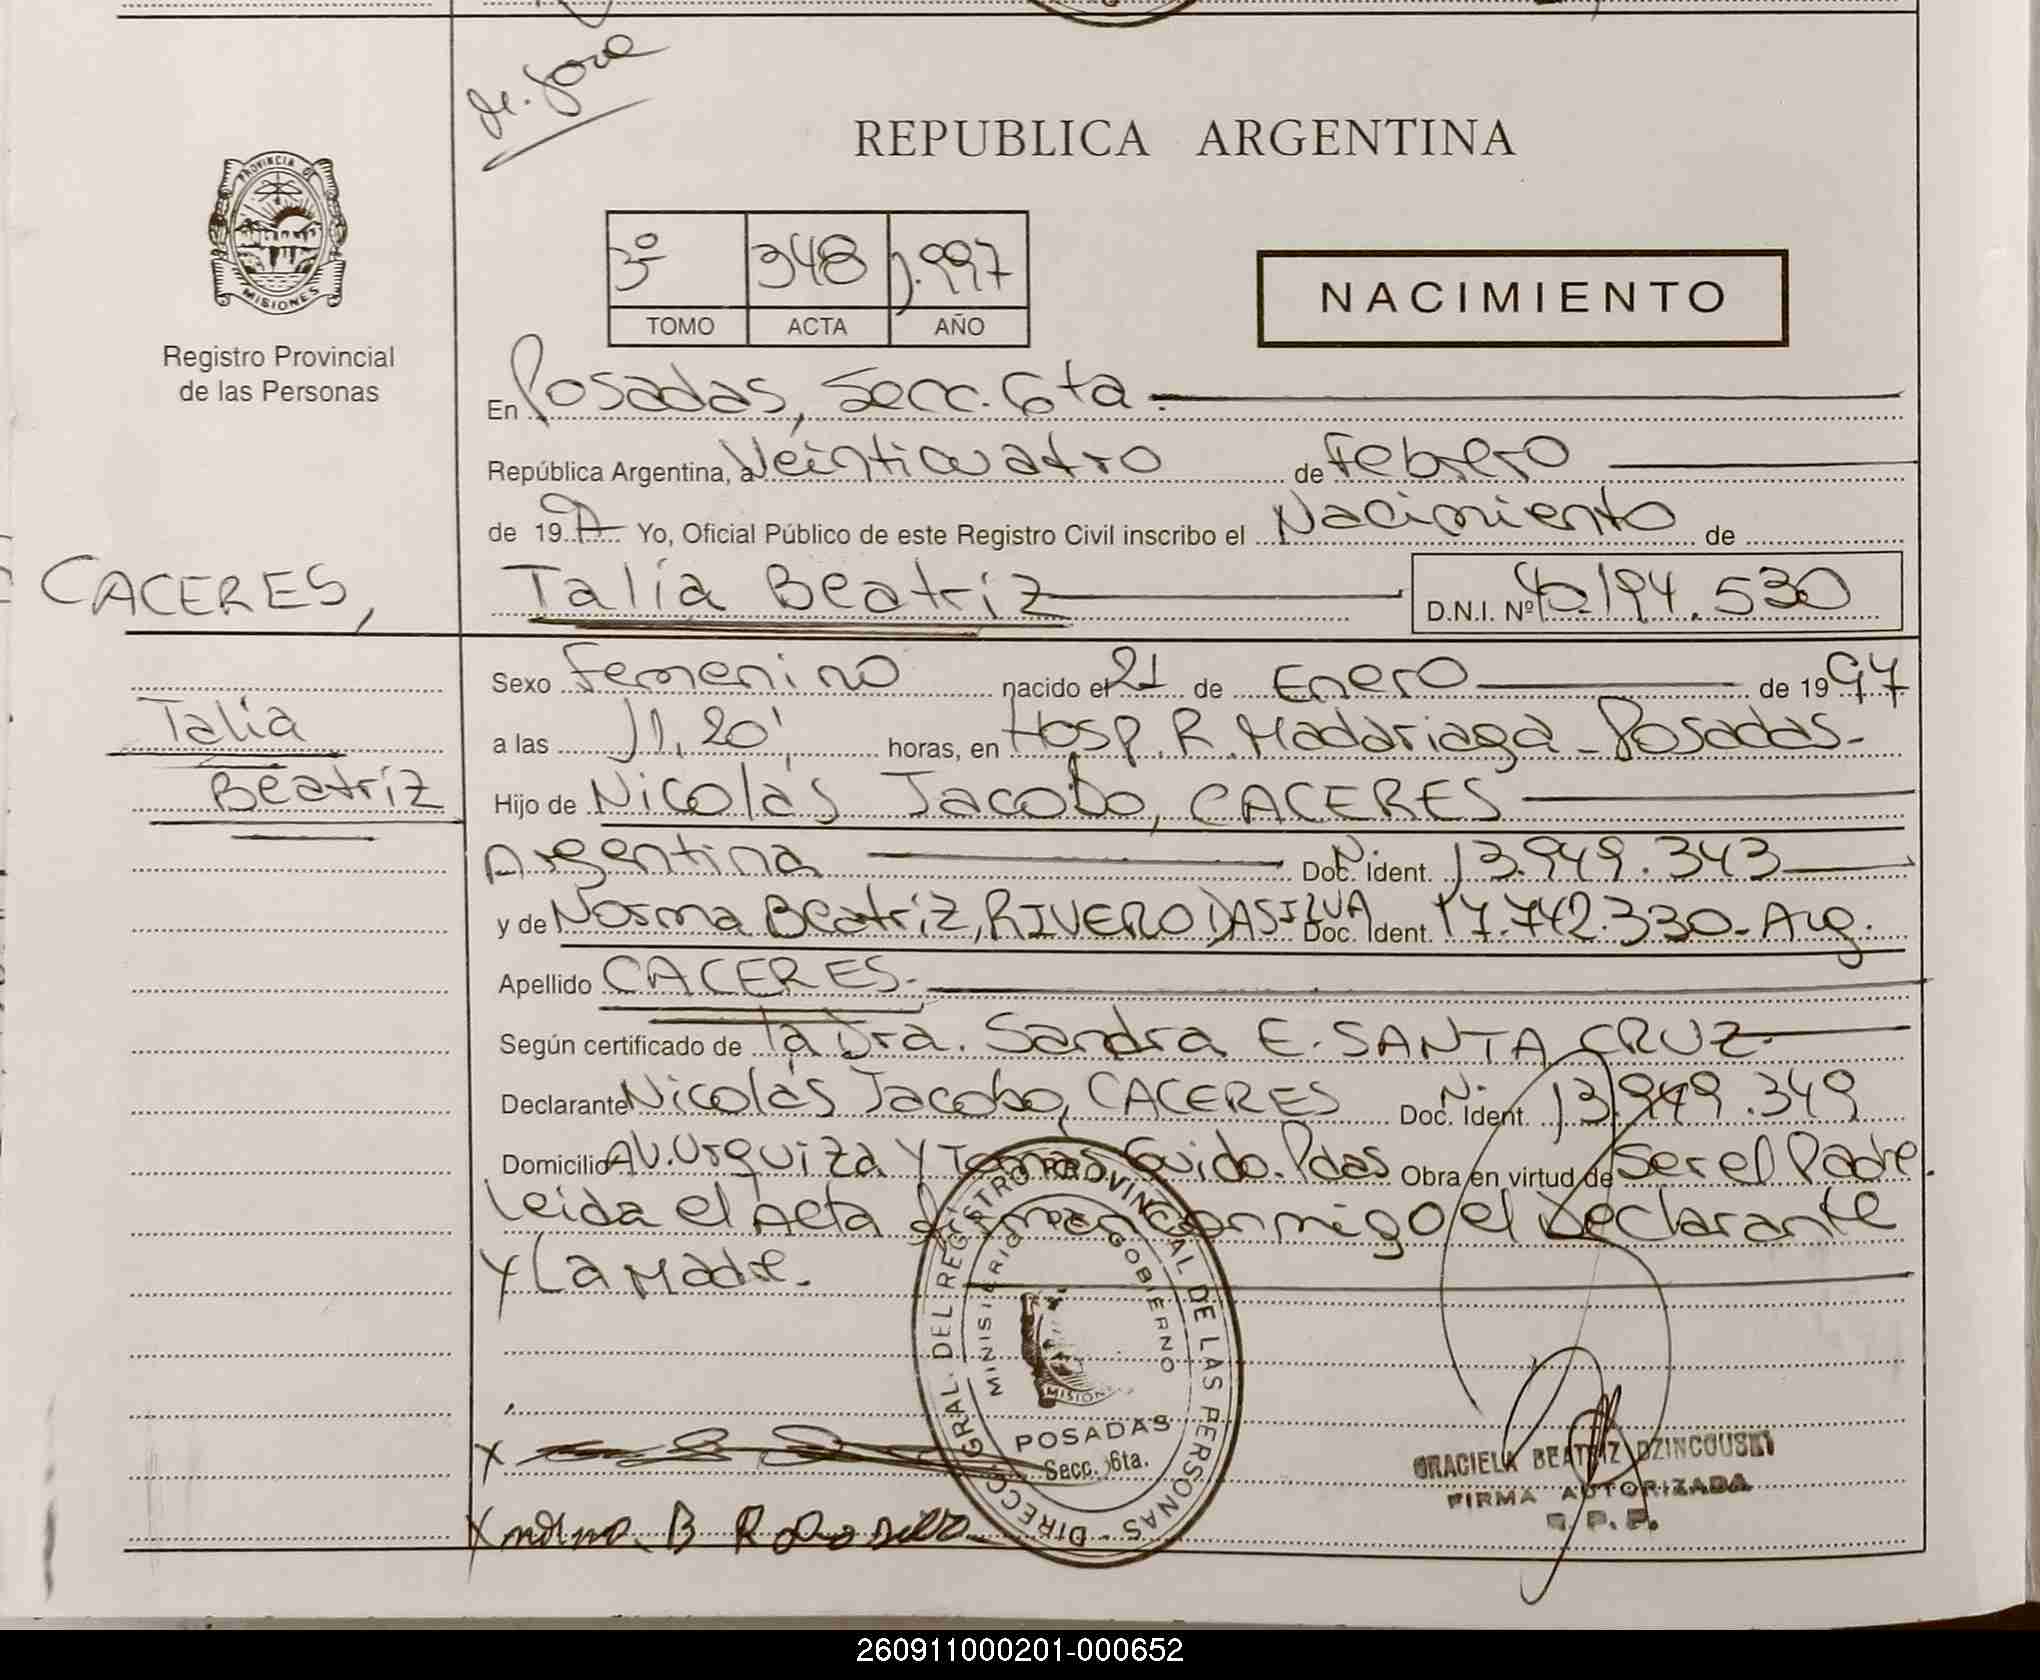 REPUBLICA ARGENTINA
PROVINCIA DE
MISIONES
Registro Provincial
de las Personas
3º 348 1.997
TOMO ACTA AÑO
NACIMIENTO
En Posadas, Secc. 6ta.
República Argentina, a Veinticuatro de Febrero
de 1997 Yo, Oficial Público de este Registro Civil inscribo el Nacimiento de
CACERES, Talía Beatríz D.N.I. Nº 40.194.530
Talía
Beatríz
Sexo Femenino nacido el 21 de Enero de 1997
a las 11,20' horas, en Hosp. R. Madariaga - Posadas-
Hijo de Nicolás Jacobo, CACERES
Argentina Doc. Ident. N. 13.949.343
y de Norma Beatríz, RIVERO DASILVA Doc. Ident. 17.742.330- Arg.
Apellido CACERES.-
Según certificado de la Dra. Sandra E. SANTA CRUZ
Declarante Nicolás Jacobo, CACERES Doc. Ident. N. 13.949.349
Domicilio AV. Urquiza Y Tomás Guido. Pdas Obra en virtud de Ser el Padre.
Leída el Acta firman conmigo el Declarante
Y La Madre.
DIRECC. GRAL. DEL REGISTRO PROVINCIAL DE LAS PERSONAS
MINISTERIO DE GOBIERNO
POSADAS
Secc. 6ta.
X
X
GRACIELA BEATRIZ DZINCOUSKI
FIRMA AUTORIZADA
R. P. P.
260911000201-000652